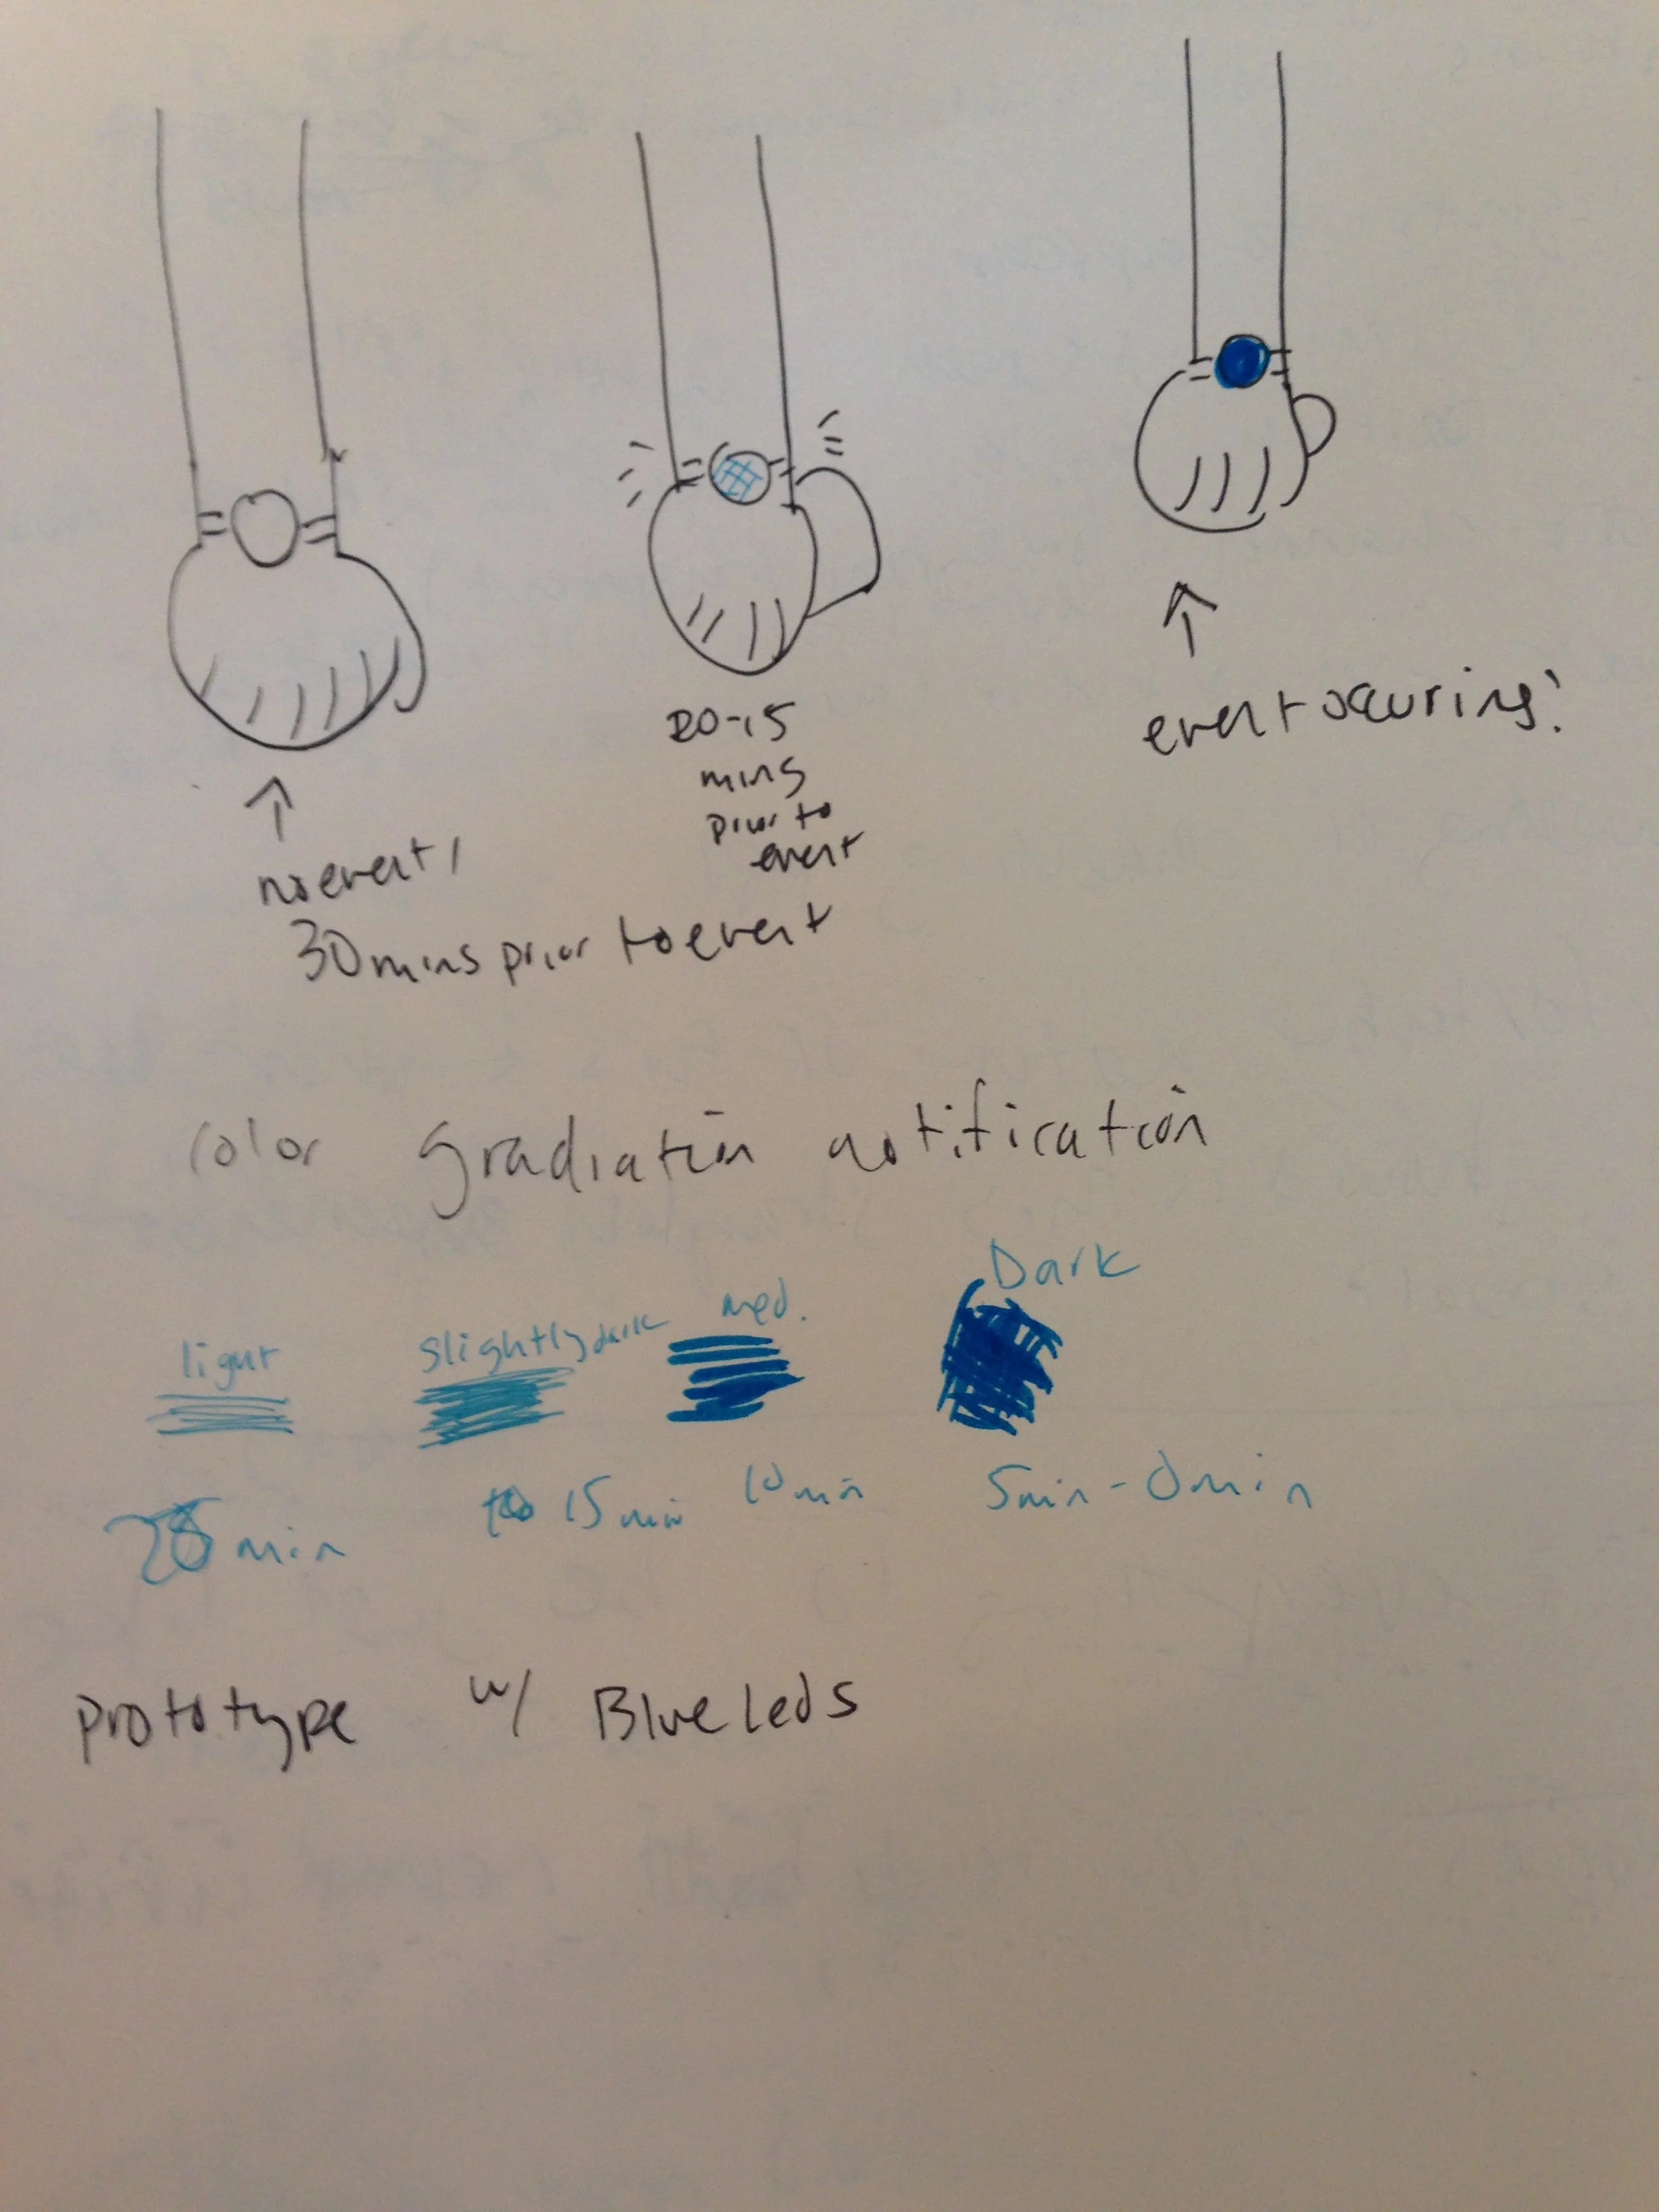 no event /
30 mins prior to event
20-15
mins
prior to
event
event occuring!
color gradiation notification
light
slightly dark
med.
Dark
min
15 min
10 min
5 min - 0 min
prototype w/ Blue leds